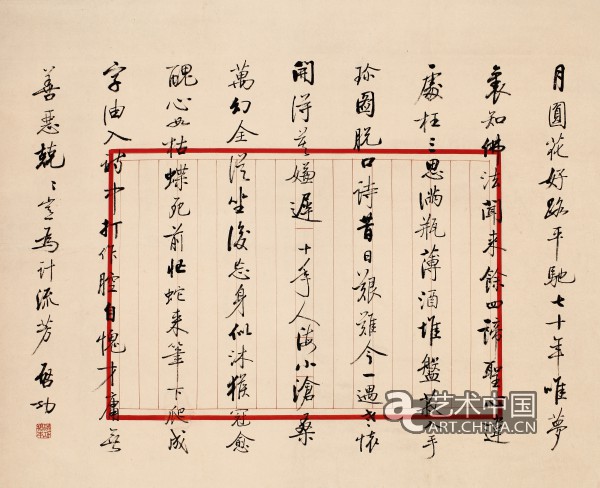 月圓花好路平馳七十年唯夢
裏知佛法聞来餘四諦聖違
處枉三思滿瓶薄酒堆盤菜入手
珍圖脫口詩昔日艱難今一遇老懷
開得莫嫌遲 十年人海小滄桑
萬幻全從坐後忘身似沐猴冠愈
醜心如枯蝶死前忙蛇来筆下爬成
字油入詩中打作腔自愧才庸無
善惡兢〻豈為計流芳 啓功
艺术中国
ART.CHINA.CN